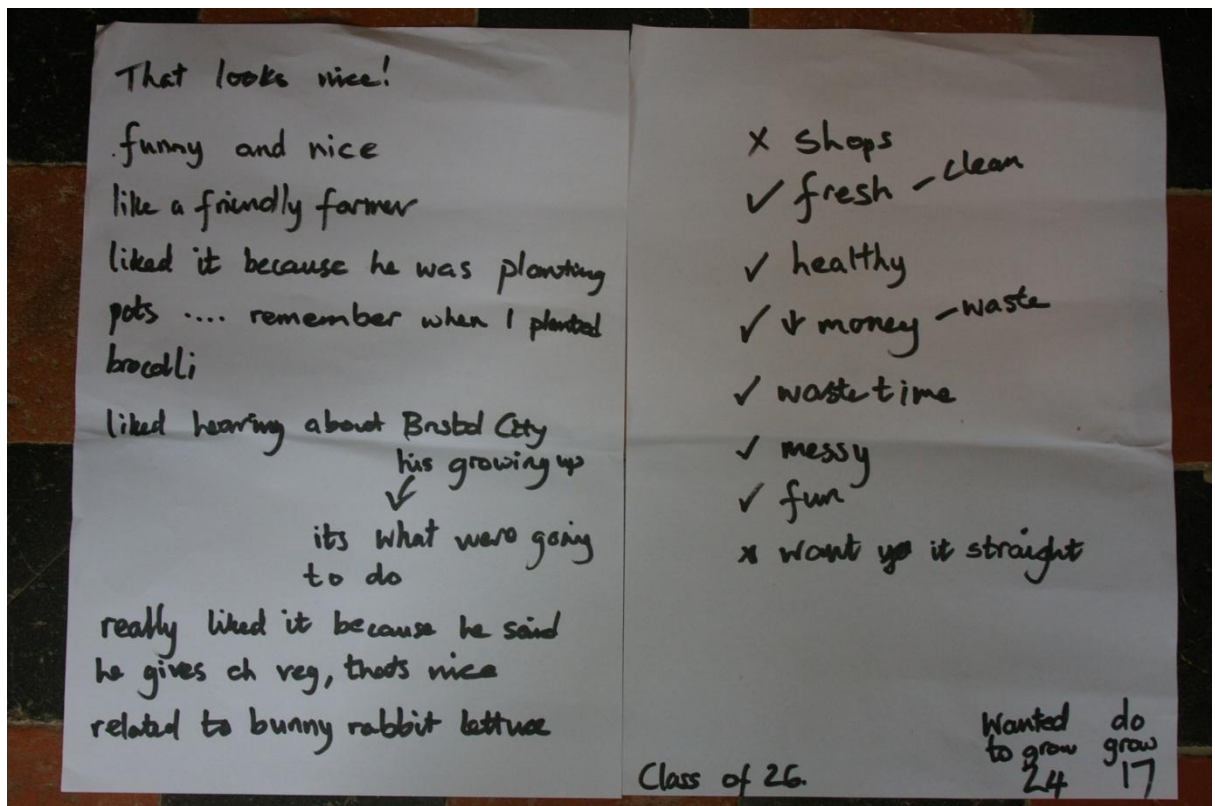 That looks nice!
.funny and nice
like a friendly farmer
liked it because he was planting
pots .... remember when I planted
brocolli
liked hearing about Bristol City
his growing up
↓
its what were going
to do
really liked it because he said
he gives ch veg, thats nice
related to bunny rabbit lettuce
x shops
✓ fresh – clean
✓ healthy
✓ ↓ money – waste
✓ waste time
✓ messy
✓ fun
x want it straight
Class of 26.
Wanted do
to grow grow
24 17